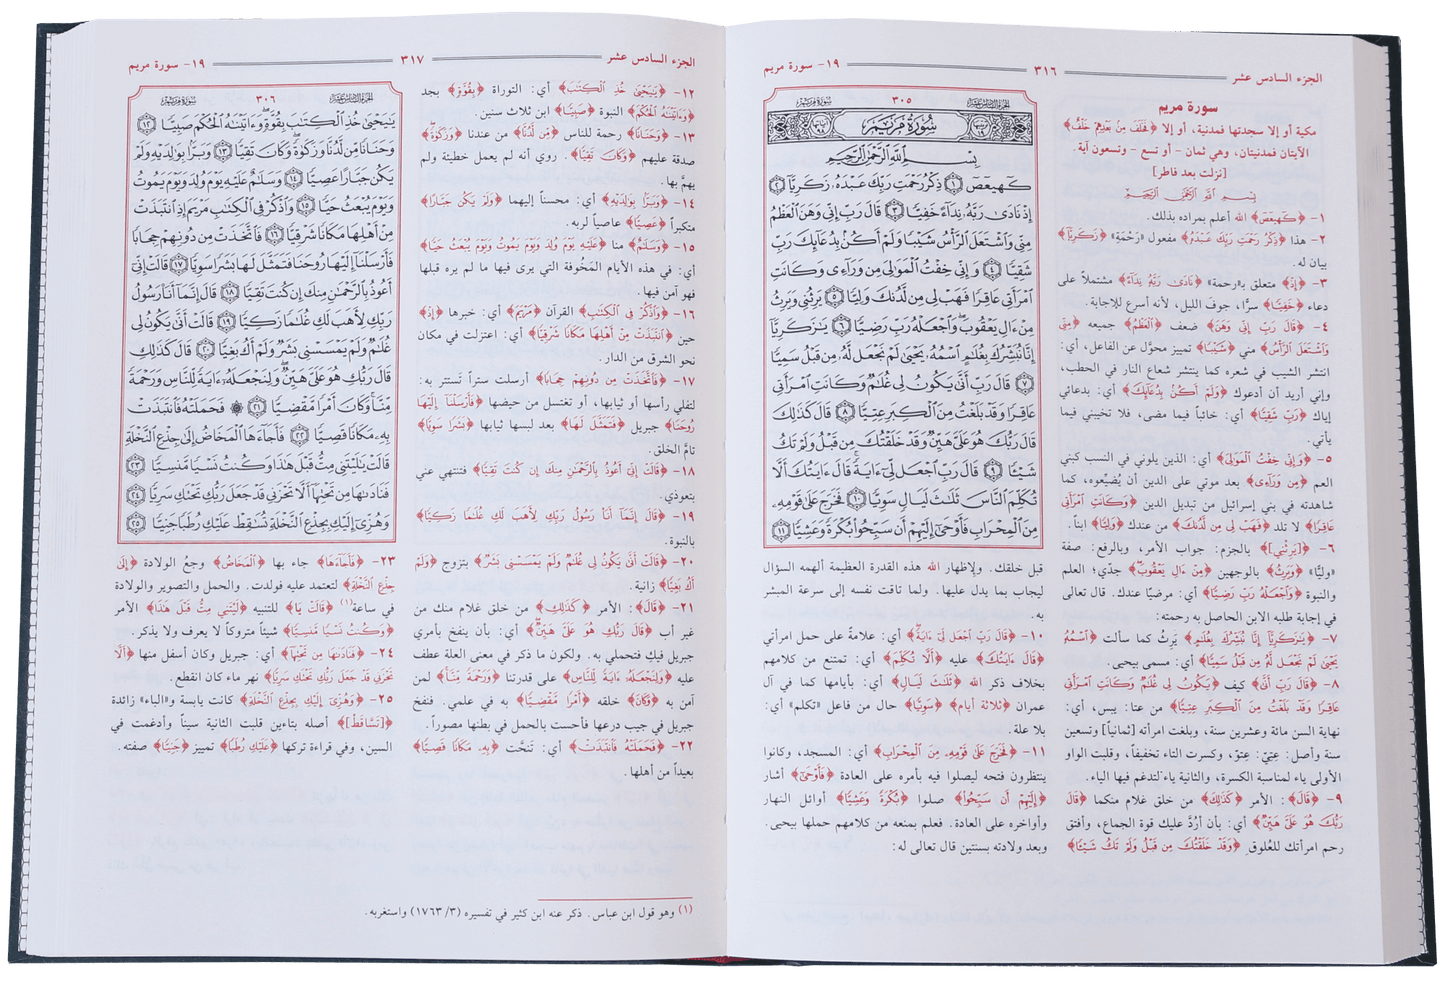 الجزء السادس عشر ٣١٦ ١٩- سورة مريم
سورة مريم
مكية أو إلا سجدتها فمدنية، أو إلا ﴿فَخَلَفَ مِنْ بَعْدِهِمْ خَلْفٌ﴾
الآيتان فمدنيتان، وهي ثمان - أو تسع - وتسعون آية.
[نزلت بعد فاطر]
بِسْمِ اللَّهِ الرَّحْمَٰنِ الرَّحِيمِ
١- ﴿كٓهيعٓصٓ﴾ الله أعلم بمراده بذلك.
٢- هذا ﴿ذِكْرُ رَحْمَتِ رَبِّكَ عَبْدَهُ﴾ مفعول «رَحْمَة» ﴿زَكَرِيَّآ﴾
بيان له.
٣- ﴿إِذْ﴾ متعلق بـ«رحمة» ﴿نَادَىٰ رَبَّهُ نِدَآءً﴾ مشتملاً على
دعاء ﴿خَفِيًّا﴾ سرًّا، جوفَ الليل، لأنه أسرع للإجابة.
٤- ﴿قَالَ رَبِّ إِنِّي وَهَنَ﴾ ضعف ﴿الْعَظْمُ﴾ جميعه ﴿مِنِّي
وَاشْتَعَلَ الرَّأْسُ﴾ مني ﴿شَيْبًا﴾ تمييز محوَّل عن الفاعل، أي:
انتشر الشيب في شعره كما ينتشر شعاع النار في الحطب،
وإني أريد أن أدعوك ﴿وَلَمْ أَكُنْ بِدُعَآئِكَ﴾ أي: بدعائي
إياك ﴿رَبِّ شَقِيًّا﴾ أي: خائباً فيما مضى، فلا تخيبني فيما
يأتي.
٥- ﴿وَإِنِّي خِفْتُ الْمَوَالِيَ﴾ أي: الذين يلوني في النسب كبني
العم ﴿مِنْ وَرَآءِي﴾ بعد موتي على الدين أن يُضيِّعوه، كما
شاهدته في بني إسرائيل من تبديل الدين ﴿وَكَانَتِ امْرَأَتِي
عَاقِرًا﴾ لا تلد ﴿فَهَبْ لِي مِنْ لَدُنْكَ﴾ من عندك ﴿وَلِيًّا﴾ ابناً.
٦- ﴿[يَرِثْنِي]﴾ بالجزم: جواب الأمر، وبالرفع: صفة
«وليًّا» ﴿وَيَرِثُ﴾ بالوجهين ﴿مِنْ ءَالِ يَعْقُوبَ﴾ جدّي؛ العلم
والنبوة ﴿وَاجْعَلْهُ رَبِّ رَضِيًّا﴾ أي: مرضيًّا عندك. قال تعالى
في إجابة طلبه الابن الحاصل به رحمته:
٧- ﴿يَٰزَكَرِيَّآ إِنَّا نُبَشِّرُكَ بِغُلَٰمٍ﴾ يَرِثُ كما سألت ﴿اسْمُهُ
يَحْيَىٰ لَمْ نَجْعَلْ لَهُ مِنْ قَبْلُ سَمِيًّا﴾ أي: مسمى بيحيى.
٨- ﴿قَالَ رَبِّ أَنَّىٰ﴾ كيف ﴿يَكُونُ لِي غُلَٰمٌ وَكَانَتِ امْرَأَتِي
عَاقِرًا وَقَدْ بَلَغْتُ مِنَ الْكِبَرِ عِتِيًّا﴾ من عتا: يبس، أي:
نهاية السن مائة وعشرين سنة، وبلغت امرأته [ثمانياً] وتسعين
سنة وأصل: عِتِيّ: عتوّ، وكسرت التاء تخفيفاً، وقلبت الواو
الأولى ياء لمناسبة الكسرة، والثانية ياء لتدغم فيها الياء.
٩- ﴿قَالَ﴾: الأمر ﴿كَذَٰلِكَ﴾ من خلق غلام منكما ﴿قَالَ
رَبُّكَ هُوَ عَلَيَّ هَيِّنٌ﴾ أي: بأن أرُدَّ عليك قوة الجماع، وأفتق
رحم امرأتك للعُلوقِ ﴿وَقَدْ خَلَقْتُكَ مِنْ قَبْلُ وَلَمْ تَكُ شَيْئًا﴾
سُورَةُ مَرْيَم ٣٠٥ الجزء السادس عشر
سُورَةُ مَرْيَمَ
بِسْمِ اللَّهِ الرَّحْمَٰنِ الرَّحِيمِ
كٓهيعٓصٓ ۝١ ذِكْرُ رَحْمَتِ رَبِّكَ عَبْدَهُ زَكَرِيَّآ ۝٢
إِذْ نَادَىٰ رَبَّهُ نِدَآءً خَفِيًّا ۝٣ قَالَ رَبِّ إِنِّي وَهَنَ الْعَظْمُ
مِنِّي وَاشْتَعَلَ الرَّأْسُ شَيْبًا وَلَمْ أَكُنْ بِدُعَآئِكَ رَبِّ
شَقِيًّا ۝٤ وَإِنِّي خِفْتُ الْمَوَالِيَ مِنْ وَرَآءِي وَكَانَتِ
امْرَأَتِي عَاقِرًا فَهَبْ لِي مِنْ لَدُنْكَ وَلِيًّا ۝٥ يَرِثُنِي وَيَرِثُ
مِنْ ءَالِ يَعْقُوبَ وَاجْعَلْهُ رَبِّ رَضِيًّا ۝٦ يَٰزَكَرِيَّآ
إِنَّا نُبَشِّرُكَ بِغُلَٰمٍ اسْمُهُ يَحْيَىٰ لَمْ نَجْعَلْ لَهُ مِنْ قَبْلُ سَمِيًّا
۝٧ قَالَ رَبِّ أَنَّىٰ يَكُونُ لِي غُلَٰمٌ وَكَانَتِ امْرَأَتِي
عَاقِرًا وَقَدْ بَلَغْتُ مِنَ الْكِبَرِ عِتِيًّا ۝٨ قَالَ كَذَٰلِكَ
قَالَ رَبُّكَ هُوَ عَلَيَّ هَيِّنٌ وَقَدْ خَلَقْتُكَ مِنْ قَبْلُ وَلَمْ تَكُ
شَيْئًا ۝٩ قَالَ رَبِّ اجْعَلْ لِي ءَايَةً قَالَ ءَايَتُكَ أَلَّا
تُكَلِّمَ النَّاسَ ثَلَٰثَ لَيَالٍ سَوِيًّا ۝١٠ فَخَرَجَ عَلَىٰ قَوْمِهِ
مِنَ الْمِحْرَابِ فَأَوْحَىٰٓ إِلَيْهِمْ أَنْ سَبِّحُوا بُكْرَةً وَعَشِيًّا ۝١١
قبل خلقك. ولإظهار الله هذه القدرة العظيمة ألهمه السؤال
ليجاب بما يدل عليها. ولما تاقت نفسه إلى سرعة المبشر
به.
١٠- ﴿قَالَ رَبِّ اجْعَلْ لِي ءَايَةً﴾ أي: علامةً على حمل امرأتي
﴿قَالَ ءَايَتُكَ﴾ عليه ﴿أَلَّا تُكَلِّمَ﴾ أي: تمتنع من كلامهم
بخلاف ذكر الله ﴿ثَلَٰثَ لَيَالٍ﴾ أي: بأيامها كما في آل
عمران ﴿ثلاثة أيام﴾ ﴿سَوِيًّا﴾ حال من فاعل «تكلم» أي:
بلا علة.
١١- ﴿فَخَرَجَ عَلَىٰ قَوْمِهِ مِنَ الْمِحْرَابِ﴾ أي: المسجد، وكانوا
ينتظرون فتحه ليصلوا فيه بأمره على العادة ﴿فَأَوْحَىٰٓ﴾ أشار
﴿إِلَيْهِمْ أَنْ سَبِّحُوا﴾ صلوا ﴿بُكْرَةً وَعَشِيًّا﴾ أوائل النهار
وأواخره على العادة. فعلم بمنعه من كلامهم حملها بيحيى.
وبعد ولادته بسنتين قال تعالى له:
الجزء السادس عشر ٣١٧ ١٩- سورة مريم
١٢- ﴿يَٰيَحْيَىٰ خُذِ الْكِتَٰبَ﴾ أي: التوراة ﴿بِقُوَّةٍ﴾ بجد
﴿وَءَاتَيْنَٰهُ الْحُكْمَ﴾ النبوة ﴿صَبِيًّا﴾ ابن ثلاث سنين.
١٣- ﴿وَحَنَانًا﴾ رحمة للناس ﴿مِنْ لَدُنَّا﴾ من عندنا ﴿وَزَكَوٰةً﴾
صدقة عليهم ﴿وَكَانَ تَقِيًّا﴾. روي أنه لم يعمل خطيئة ولم
يهمَّ بها.
١٤- ﴿وَبَرًّا بِوَٰلِدَيْهِ﴾ أي: محسناً إليهما ﴿وَلَمْ يَكُنْ جَبَّارًا﴾
متكبراً ﴿عَصِيًّا﴾ عاصياً لربه.
١٥- ﴿وَسَلَٰمٌ﴾ منا ﴿عَلَيْهِ يَوْمَ وُلِدَ وَيَوْمَ يَمُوتُ وَيَوْمَ يُبْعَثُ حَيًّا﴾
أي: في هذه الأيام المَخُوفة التي يرى فيها ما لم يره قبلها
فهو آمن فيها.
١٦- ﴿وَاذْكُرْ فِي الْكِتَٰبِ﴾ القرآن ﴿مَرْيَمَ﴾ أي: خبرها ﴿إِذِ﴾
حين ﴿انْتَبَذَتْ مِنْ أَهْلِهَا مَكَانًا شَرْقِيًّا﴾ أي: اعتزلت في مكان
نحو الشرق من الدار.
١٧- ﴿فَاتَّخَذَتْ مِنْ دُونِهِمْ حِجَابًا﴾ أرسلت ستراً تَستتر به:
لتفلي رأسها أو ثيابها، أو تغتسل من حيضها ﴿فَأَرْسَلْنَآ إِلَيْهَا
رُوحَنَا﴾ جبريل ﴿فَتَمَثَّلَ لَهَا﴾ بعد لبسها ثيابها ﴿بَشَرًا سَوِيًّا﴾
تامَّ الخلق.
١٨- ﴿قَالَتْ إِنِّي أَعُوذُ بِالرَّحْمَٰنِ مِنْكَ إِنْ كُنْتَ تَقِيًّا﴾ فتنتهي عني
بتعوذي.
١٩- ﴿قَالَ إِنَّمَآ أَنَا رَسُولُ رَبِّكِ لِأَهَبَ لَكِ غُلَٰمًا زَكِيًّا﴾
بالنبوة.
٢٠- ﴿قَالَتْ أَنَّىٰ يَكُونُ لِي غُلَٰمٌ وَلَمْ يَمْسَسْنِي بَشَرٌ﴾ بتزوج ﴿وَلَمْ
أَكُ بَغِيًّا﴾ زانية.
٢١- ﴿قَالَ﴾: الأمر ﴿كَذَٰلِكِ﴾ من خلق غلام منك من
غير أب ﴿قَالَ رَبُّكِ هُوَ عَلَيَّ هَيِّنٌ﴾ أي: بأن ينفخ بأمري
جبريل فيكِ فتحملي به. ولكون ما ذكر في معنى العلة عطف
عليه ﴿وَلِنَجْعَلَهُ ءَايَةً لِلنَّاسِ﴾ على قدرتنا ﴿وَرَحْمَةً مِنَّا﴾ لمن
آمن به ﴿وَكَانَ﴾ خلقه ﴿أَمْرًا مَقْضِيًّا﴾ به في علمي. فنفخ
جبريل في جيب درعها فأحست بالحمل في بطنها مصوراً.
٢٢- ﴿فَحَمَلَتْهُ فَانْتَبَذَتْ﴾ أي: تَنحَّت ﴿بِهِ مَكَانًا قَصِيًّا﴾
بعيداً من أهلها.
سُورَةُ مَرْيَم ٣٠٦ الجزء السادس عشر
يَٰيَحْيَىٰ خُذِ الْكِتَٰبَ بِقُوَّةٍ وَءَاتَيْنَٰهُ الْحُكْمَ صَبِيًّا ۝١٢
وَحَنَانًا مِنْ لَدُنَّا وَزَكَوٰةً وَكَانَ تَقِيًّا ۝١٣ وَبَرًّا بِوَٰلِدَيْهِ وَلَمْ
يَكُنْ جَبَّارًا عَصِيًّا ۝١٤ وَسَلَٰمٌ عَلَيْهِ يَوْمَ وُلِدَ وَيَوْمَ يَمُوتُ
وَيَوْمَ يُبْعَثُ حَيًّا ۝١٥ وَاذْكُرْ فِي الْكِتَٰبِ مَرْيَمَ إِذِ انْتَبَذَتْ
مِنْ أَهْلِهَا مَكَانًا شَرْقِيًّا ۝١٦ فَاتَّخَذَتْ مِنْ دُونِهِمْ حِجَابًا
فَأَرْسَلْنَآ إِلَيْهَا رُوحَنَا فَتَمَثَّلَ لَهَا بَشَرًا سَوِيًّا ۝١٧ قَالَتْ إِنِّي
أَعُوذُ بِالرَّحْمَٰنِ مِنْكَ إِنْ كُنْتَ تَقِيًّا ۝١٨ قَالَ إِنَّمَآ أَنَا رَسُولُ
رَبِّكِ لِأَهَبَ لَكِ غُلَٰمًا زَكِيًّا ۝١٩ قَالَتْ أَنَّىٰ يَكُونُ لِي
غُلَٰمٌ وَلَمْ يَمْسَسْنِي بَشَرٌ وَلَمْ أَكُ بَغِيًّا ۝٢٠ قَالَ كَذَٰلِكِ
قَالَ رَبُّكِ هُوَ عَلَيَّ هَيِّنٌ وَلِنَجْعَلَهُ ءَايَةً لِلنَّاسِ وَرَحْمَةً
مِنَّا وَكَانَ أَمْرًا مَقْضِيًّا ۝٢١ ۞ فَحَمَلَتْهُ فَانْتَبَذَتْ
بِهِ مَكَانًا قَصِيًّا ۝٢٢ فَأَجَآءَهَا الْمَخَاضُ إِلَىٰ جِذْعِ النَّخْلَةِ
قَالَتْ يَٰلَيْتَنِي مِتُّ قَبْلَ هَٰذَا وَكُنْتُ نَسْيًا مَنْسِيًّا ۝٢٣
فَنَادَىٰهَا مِنْ تَحْتِهَآ أَلَّا تَحْزَنِي قَدْ جَعَلَ رَبُّكِ تَحْتَكِ سَرِيًّا ۝٢٤
وَهُزِّي إِلَيْكِ بِجِذْعِ النَّخْلَةِ تُسَٰقِطْ عَلَيْكِ رُطَبًا جَنِيًّا ۝٢٥
٢٣- ﴿فَأَجَآءَهَا﴾ جاء بها ﴿الْمَخَاضُ﴾ وجعُ الولادة ﴿إِلَىٰ
جِذْعِ النَّخْلَةِ﴾ لتعتمد عليه فولدت. والحمل والتصوير والولادة
في ساعة(١) ﴿قَالَتْ يَا﴾ للتنبيه ﴿لَيْتَنِي مِتُّ قَبْلَ هَٰذَا﴾ الأمر
﴿وَكُنْتُ نَسْيًا مَنْسِيًّا﴾ شيئاً متروكاً لا يعرف ولا يذكر.
٢٤- ﴿فَنَادَىٰهَا مِنْ تَحْتِهَآ﴾ أي: جبريل وكان أسفل منها ﴿أَلَّا
تَحْزَنِي قَدْ جَعَلَ رَبُّكِ تَحْتَكِ سَرِيًّا﴾ نهر ماء كان انقطع.
٢٥- ﴿وَهُزِّي إِلَيْكِ بِجِذْعِ النَّخْلَةِ﴾ كانت يابسة و«الباء» زائدة
﴿[تَسَّاقَطْ]﴾ أصله بتاءين قلبت الثانية سيناً وأدغمت في
السين، وفي قراءة تركها ﴿عَلَيْكِ رُطَبًا﴾ تمييز ﴿جَنِيًّا﴾ صفته.
(١) وهو قول ابن عباس. ذكر عنه ابن كثير في تفسيره (٣/ ١٧٦٣) واستغربه.